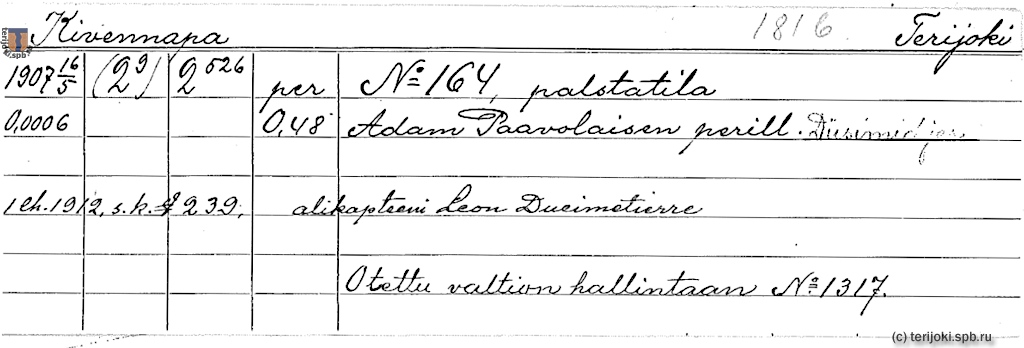 Kivennapa 1816. Terijoki
1907 16/5 (2⁹) 2⁵²⁶ per No 164, palstatila
0,0006 0,48 Adam Paavolaisen perill.
1 ch. 1912, s.k. § 239, alikapteeni Leon Ducimetierre
Otettu valtion hallintaan No 1317.
terijoki.spb
(c) terijoki.spb.ru